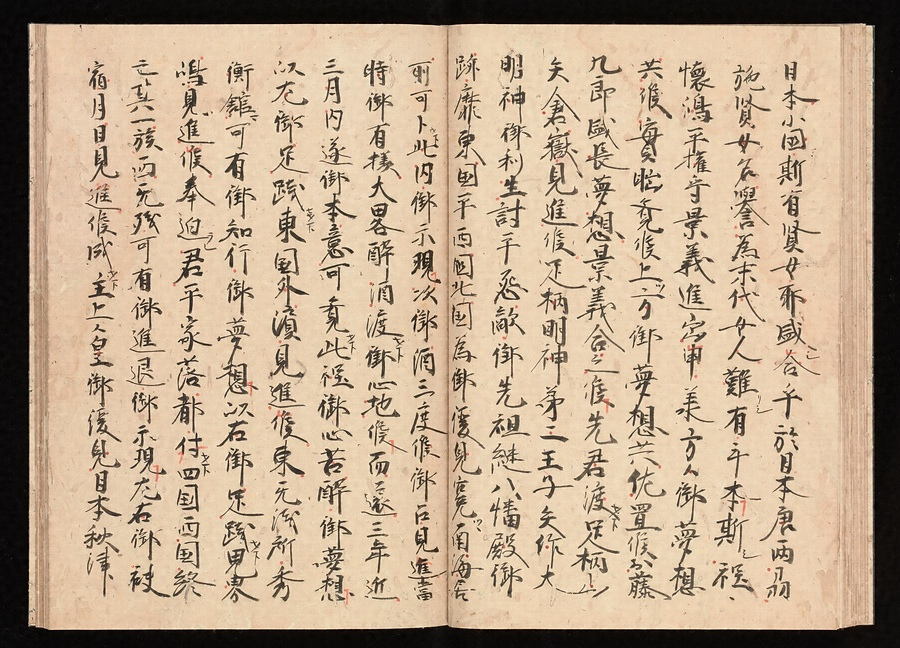 日本小国斯有賢女耶盛合乎於日本唐両羽
施賢女名誉為末代女人難有乎本斯
懐嶋平権守景義進寄申美方々御夢想
共後実臨兎候上一分御夢想共作置候藤
九郎盛長夢想景義合之候先君渡足柄
矢倉嶽見進候足柄明神第三王子矢作大
明神御利生討平怨敵御先祖継八幡殿御
跡靡東国平西国北国為御後見
可卜此内御示現次御酒三度候御召見進当
時御有様大略酔酒渡御心地候而還三年近
三月内遂御本意可覚此程御心苦酔御夢想
以左御足践東国外濱見進候東無残所秀
衡館可有御知行御夢想以右御足践鬼界
嶋見進候奉迫君平家落都付四国西国終
一族西無残可有御進退御示現左右御被
宿月日見進候成主上々皇御後見日本秋津